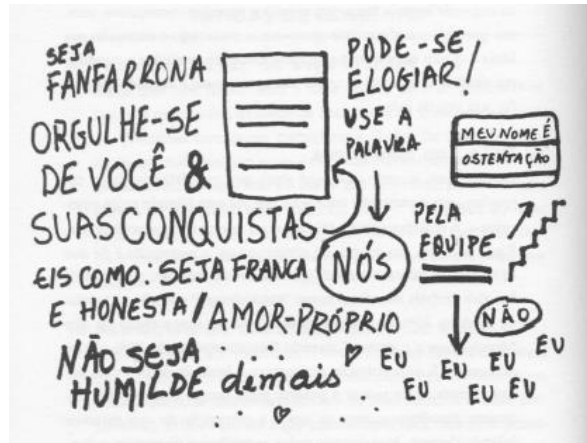 SEJA
FANFARRONA
ORGULHE-SE
DE VOCÊ &
SUAS CONQUISTAS
EIS COMO: SEJA FRANCA
E HONESTA / AMOR-PRÓPRIO
NÃO SEJA
HUMILDE demais
PODE-SE
ELOGIAR!
USE A
PALAVRA
NÓS
MEU NOME É
OSTENTAÇÃO
PELA
EQUIPE
NÃO
EU EU EU EU
EU EU EU